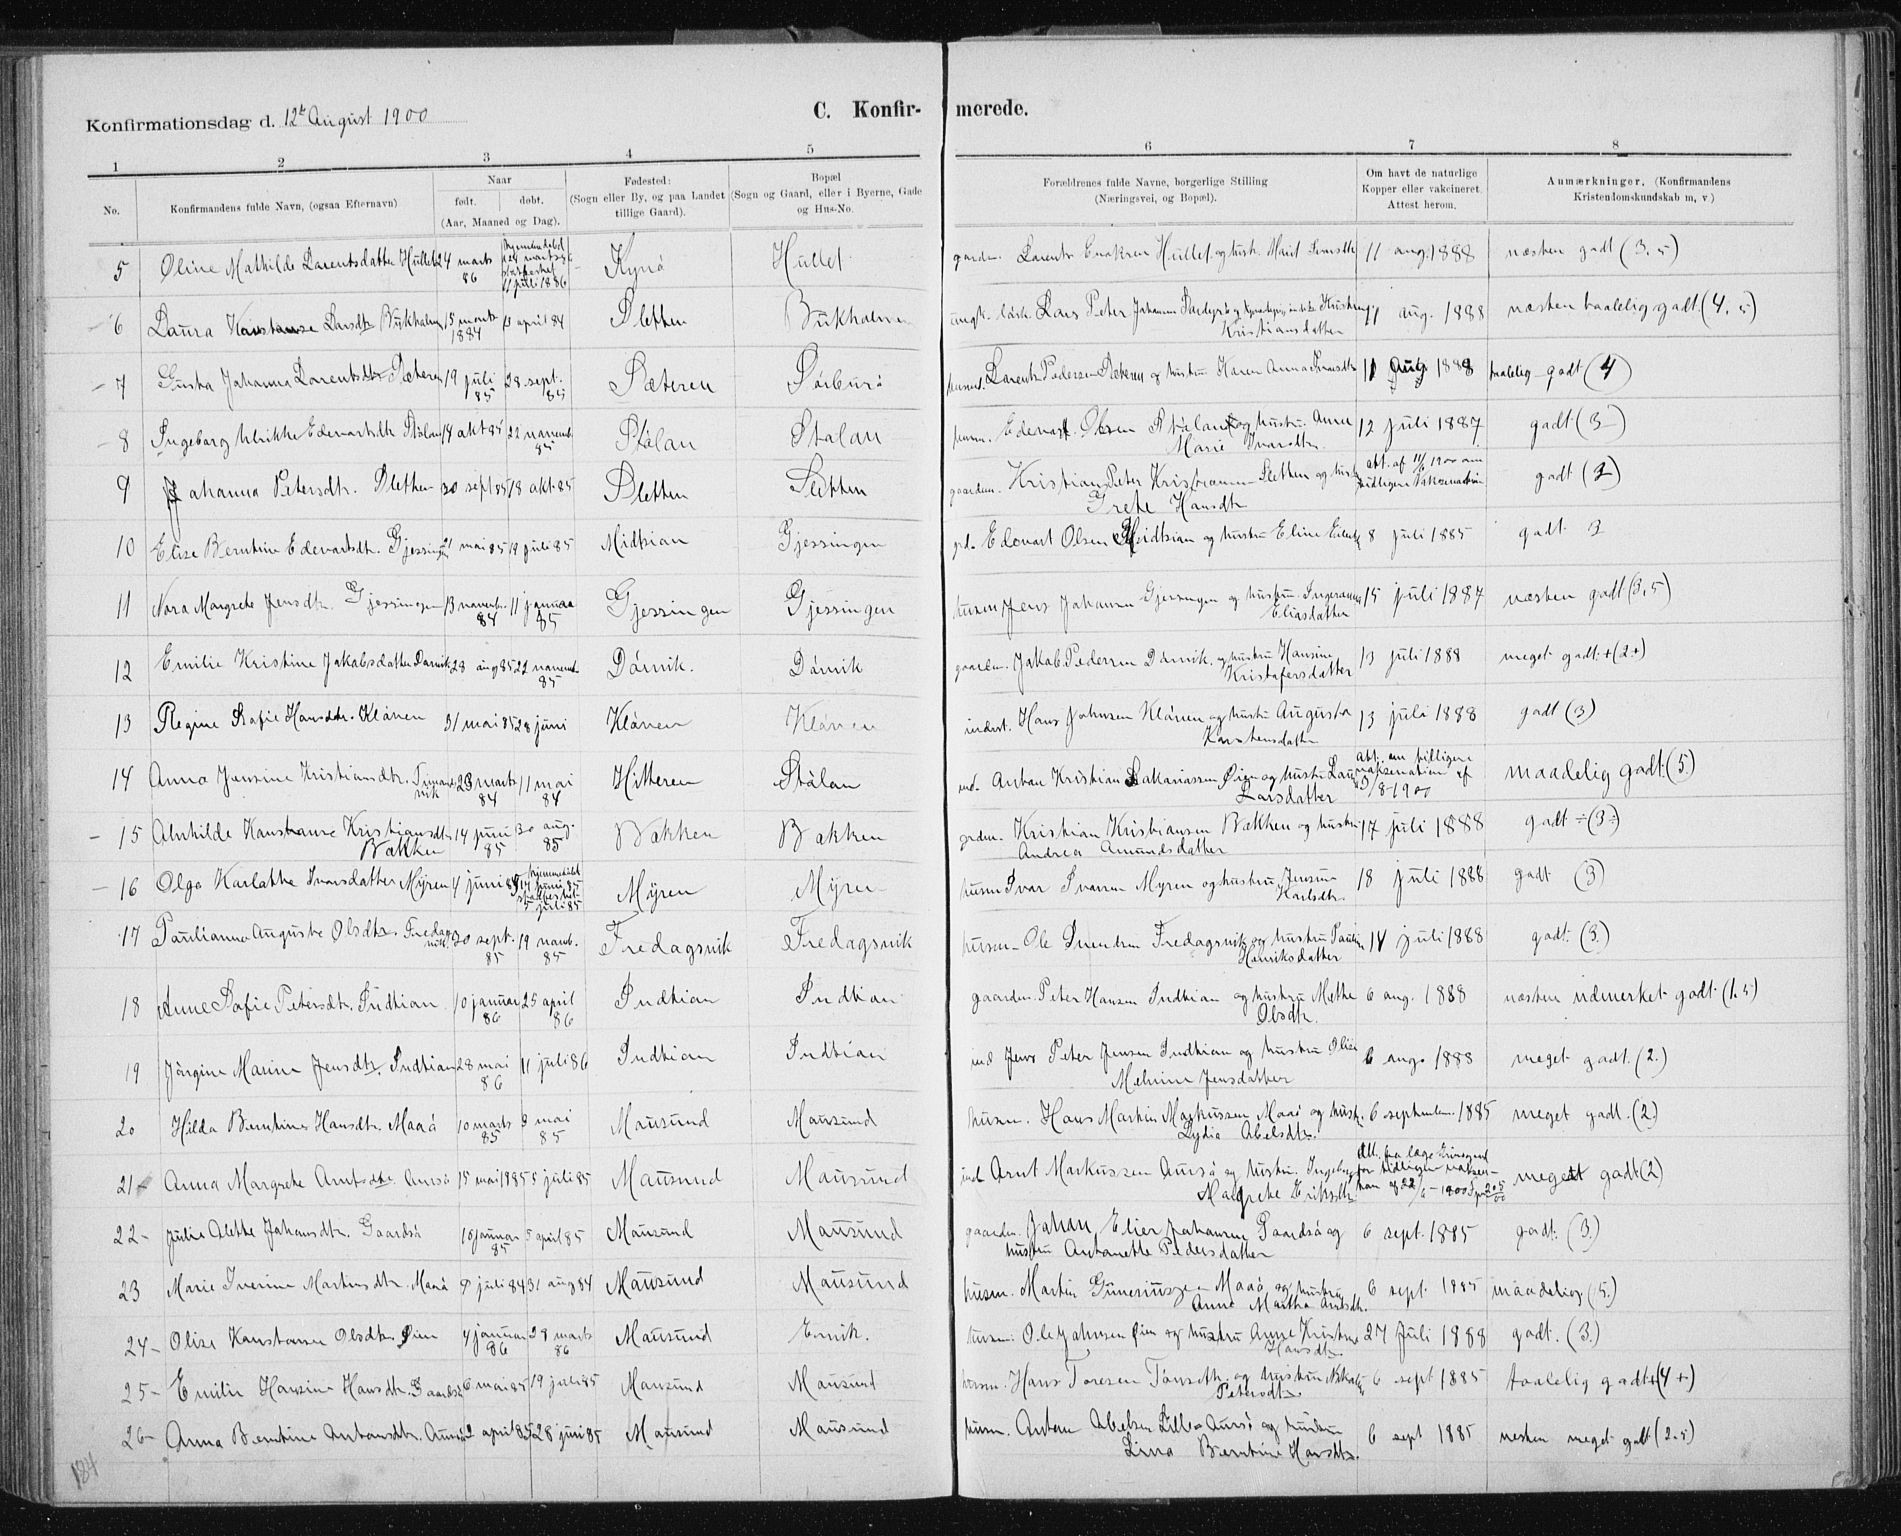 Konfirmationsdag d. 12te August 1900
C. Konfir- merede.
1 2 3 4 5 6 7 8
No.
Konfirmandens fulde Navn, (ogsaa Efternavn)
Naar
født. døbt.
(Aar, Maaned og Dag).
Fødested:
(Sogn eller By, og paa Landet
tillige Gaard).
Bopæl
(Sogn og Gaard, eller i Byerne, Gade
og Hus-No.
Forældrenes fulde Navne, borgerlige Stilling
(Næringsvei, og Bopæl).
Om havt de naturlige
Kopper eller vakcineret.
Attest herom.
Anmærkninger. (Konfirmandens
Kristendomskundskab m, v)
5 Oline Mathilde Larentsdatter Hullet 24 marts 86 11 juli 1886 Hullet 11 aug. 1888 næsten godt (3,5)
6 Laura Konstanse Larsdtr. 15 marts 1884 13 april 84 Sletten Lars Peter Johansen Kristiansdatter 11 aug. 1888 næsten taalelig godt. (4,5)
7 Gusta Johanna Larentsdtr. Sæteren 19 juli 85 28 sept. 85 Sæteren Larents Pedersen Sæteren og hustru Karen Anna 11 Aug 1888 taalelig godt (4)
8 Ingeborg Ulrikke Edevartsdtr Stølan 14 okt 85 22 novemb. 85 Stølan Stølan husm. Edevart Olsen Stølan og hustru Anne Marie Ivarsdtr. 12 juli 1887 godt (3)
9 Johanna Petersdtr. Sletten 20 sept 85 18 okt. 85 Sletten Sletten gaardm. Kristian Peter Kristiansen Sletten og hustru Grete Hansdtr att. af 11/6 1900 om tidligere Vakcination godt (3)
10 Elise Berntine Edevartsdtr. Gjessingen 21 mai 85 19 juli 85 Midtsian Gjessingen Edevart Olsen Midtsian og hustru Eline 8 juli 1885 godt 3
11 Nora Margrete Jensdtr. Gjessingen 13 novemb. 84 11 januar 85 Gjessingen Gjessingen husm Jens Johansen Gjessingen og hustru Ingeranna Eliasdatter 15 juli 1887 næsten godt (3,5)
12 Emilie Kristine Jakobsdatter Dørvik 28 aug 85 22 novemb. 85 Dørvik. Dørvik gaardm. Jakob Pedersen Dørvik og hustru Hansine Kristofersdatter 13 juli 1888 meget godt + (2+)
13 Regine Sofie Hansdtr. Kløven 31 mai 85 28 juni Kløven Kløven inderst. Hans Johnsen Kløven og hustru Augusta Karstensdatter 13 juli 1888 godt (3)
14 Anna Jensine Kristiandtr. 23 marts 84 11 mai 84 Hitteren Stølan ind. Anton Kristian Sakariassen Øien og hustru Larsdatter att. om tidligere vakcination af 9/8-1900 maadelig godt. (5)
15 Alvhilde Konstanse Kristiansdtr Bækken 14 juni 85 30 aug. 85 Bækken Bækken gardm. Kristian Kristiansen Bækken og hustru Andrea Amundsdatter 17 juli 1888 godt ÷ (3÷)
16 Olga Karlotte Ivarsdatter Myren 4 juni 85 hjemmedøbt 14 juni 85 stadfestet 5 juli 85 Myren Myren husm Ivar Ivarsen Myren og hustru Jensine Karlsdtr. 18 juli 1888 godt (3)
17 Paulianna Auguste Olsdtr. Fredagsvik 20 sept. 85 19 novb. 85 Fredagsvik Fredagsvik husm Ole Svendsen Fredagsvik og hustru Pauline Henriksdatter 14 juli 1888 godt. (3.)
18 Anne Sofie Petersdtr. Indtian 10 januar 86 25 april 86 Indtian Indtian gaardm. Peter Hansen Indtian og hustru Mette Olsdtr. 6 aug. 1888 næsten udmerket godt (1,5)
19 Jørgine Marine Jensdtr. Indtian 28 mai 86 11 juli 86 Indtian Indtian ind Jens Peter Jensen Indtian og hustru Olise Melvine Jensdatter 6 aug. 1888 meget godt. (2.)
20 Hilda Berntine Hansdtr. Maaø 10 marts 85 9 mai 85 Mausund Mausund husm. Hans Martin Markussen Maaø og hust. Lydia Abelsdtr. 6 september 1885 meget godt. (2)
21 Anna Margrete Arntsdtr. Aursø 15 mai 1885 5 juli 85 Mausund Mausund ind Arnt Markussen Aursø og hustru Ingeborg Margrete Eriksdtr meget godt (2)
22- Julie Alette Johansdtr. Gaardsø 16 januar 85 5 april 85 Mausund Mausund gaardm. Johan Elier Johansen Gaardsø og hustru Antonette Pedersdatter 6 sept. 1885 godt. (3.)
23 Marie Iverine Martinsdtr. Maaø 9 juli 84 31 aug 84 Mausund Mausund husm. Martin Guneriussen Maaø og hustru Anne Martha Arntsdtr. 6 sept. 1885 maadelig (5.)
24- Olise Konstanse Olsdtr. Øien 4 januar 86 28 marts 86 Mausund Ervik. husm. Ole Johnsen Øien og hustru Anne Kristine Hansdtr. 27 Juli 1888 godt. (3.)
25- Emilie Hansine Hansdtr. 6 mai 85 19 juli 85 Mausund Mausund husm. Hans Toresen og hustru Petersdtr. 6 sept 1885 taalelig godt + (4+)
26- Anna Berntine Antonsdtr. Aursø 2 april 85 28 juni 85 Mausund Mausund husm. Anton Abelsen Lille Aursø og hustru Lina Berntine Hansdtr. 6 sept 1885 næsten meget godt (2.5)
184